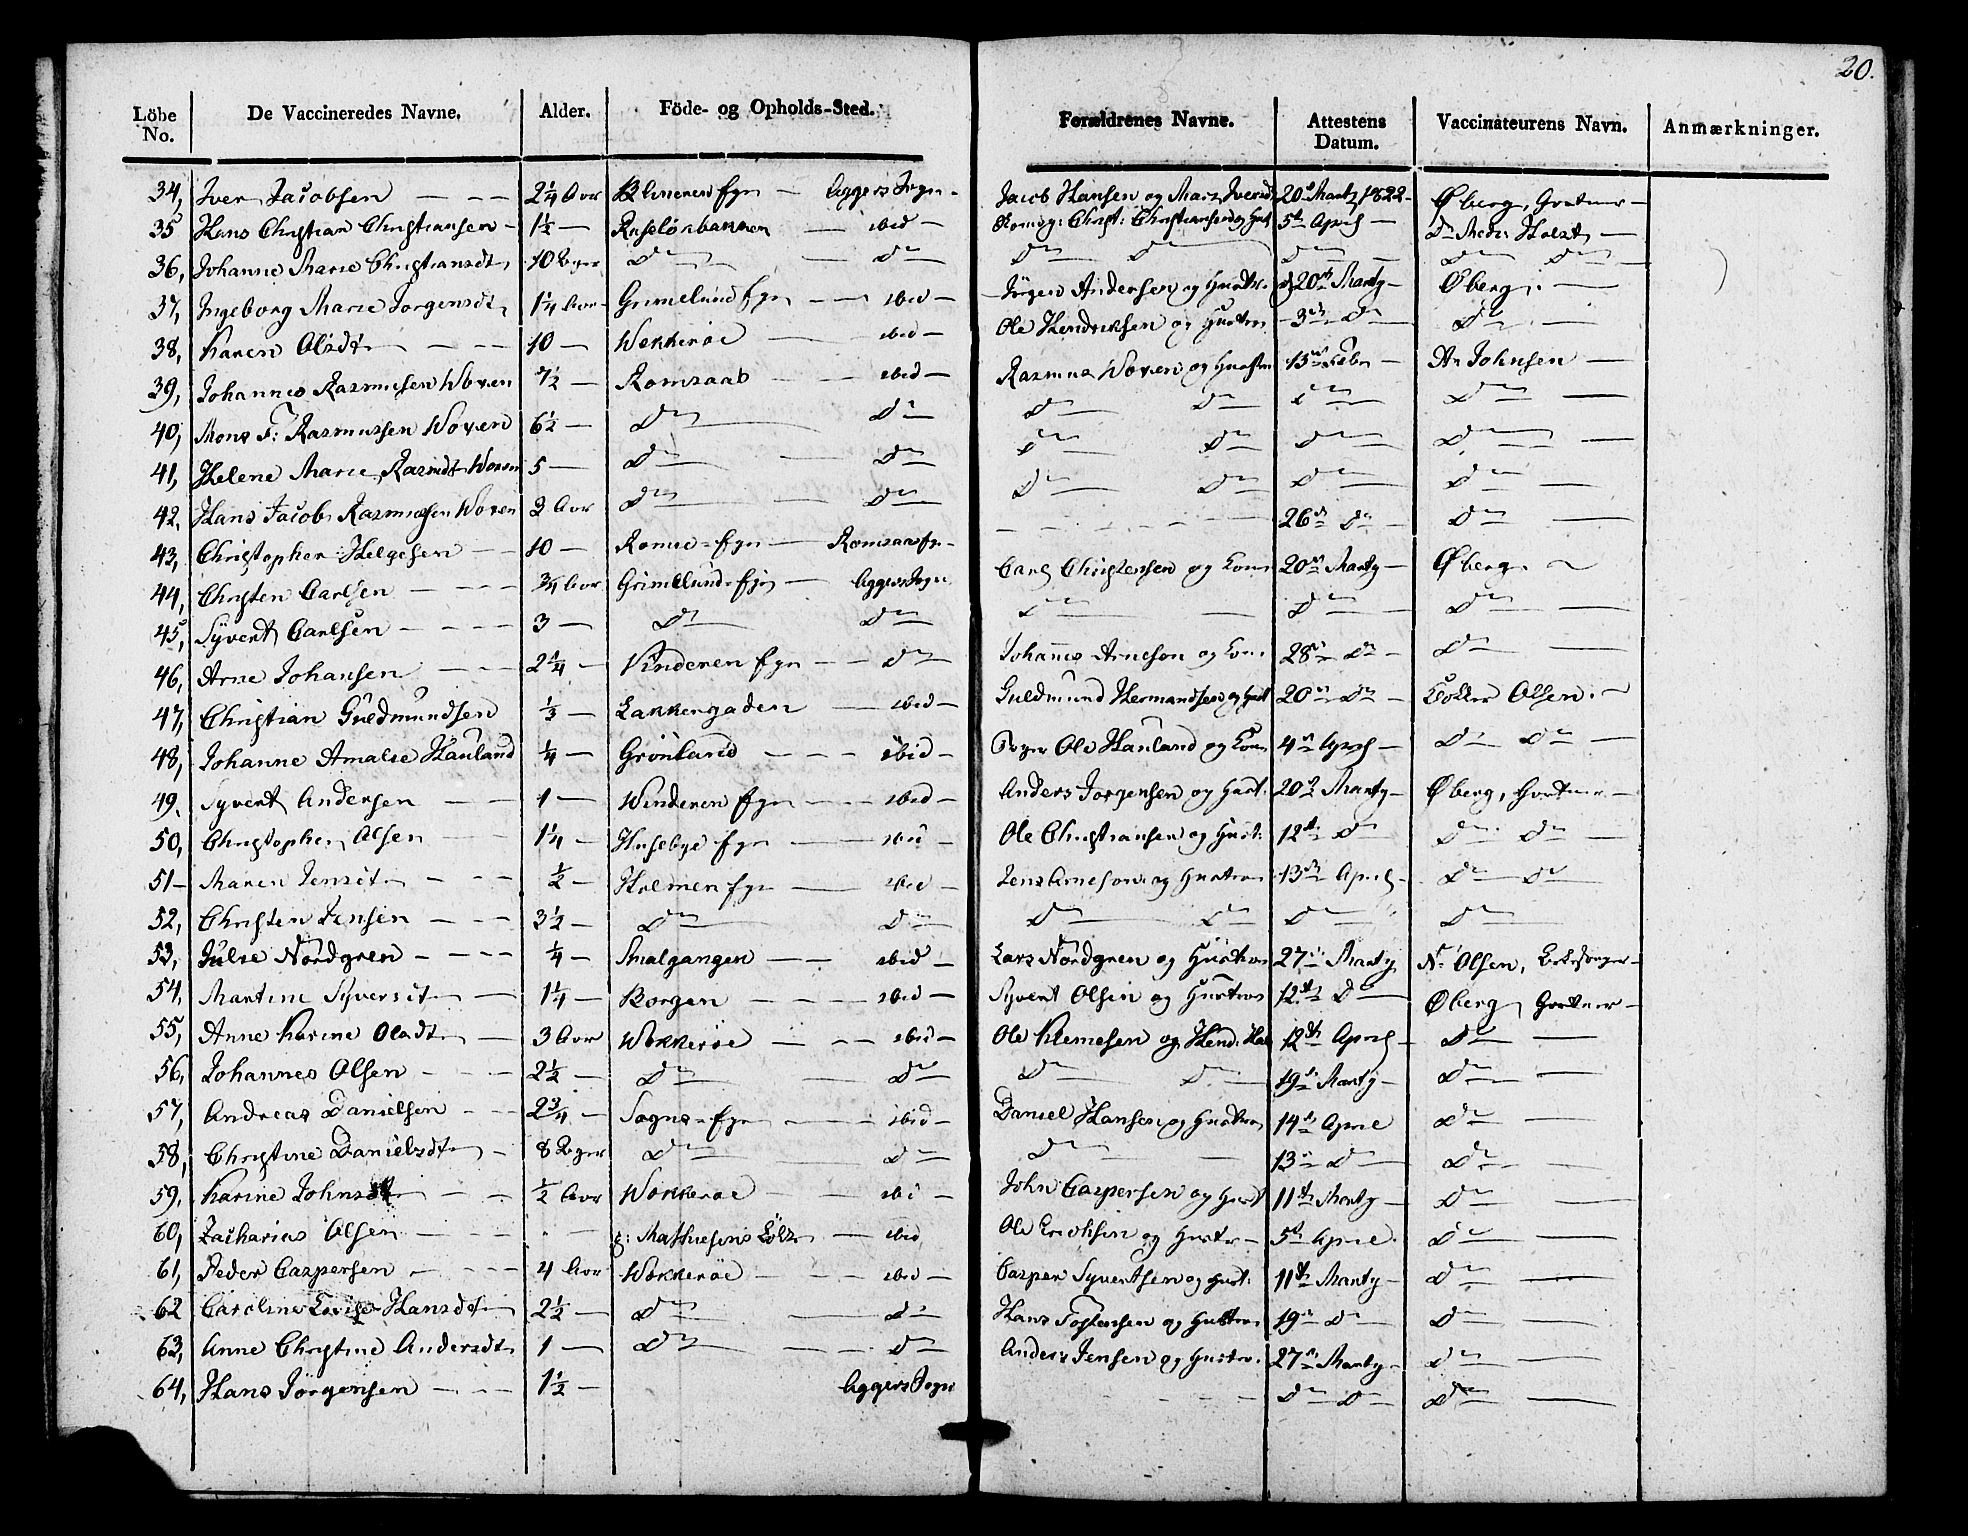 20.
Löbe No. De Vaccineredes Navne. Alder. Föde- og Opholds-Sted. Forældrenes Navne. Attestens Datum. Vaccinateurens Navn. Anmærkninger.
34, Iver Jacobsen — — — 2¼ Aar Blinderen Ejer — Aggers Sogn — Jacob Hansen og 20de Martz 1822 — Øberg, Gartner —
35 Hans Christian Christiansen — 1½ — Ruseløkbakken — ibid — Christ: Christiansen og Hust 5te April — Dr Medi: Holst —
36, Johanne Marie Christiansdt 10 Uger Do — Do — Do Do Do — Do Do —
37, Ingeborg Marie Jorgensdt 1¼ Aar — Grimelund Ejer — — ibid — Jörgen Andersen og Hustr. 20de Martz — Øberg. —
38, Karen Olsdt — — 10 — Wækkerøe — ibid — Ole Hendriksen og Hustru — 3de Do — Do —
39, Johannes Rasmusen Woxen 7½ — Romsaas — ibid — Rasmus Woxen og Hustru 15de Febr — Dr Johnsen —
40, Mons F: Rasmussen Woxen 6½ — Do — Do — Do Do Do — Do —
41, Helene Marie Rasmdt Woxen 5 — Do — Do — Do Do Do — Do —
42, Hans Jacob Rasmussen Woxen 3 Aar Do — Do — Do Do Do — Do —
43, Christopher Helgesen — — 10 — — 26de Do — Do —
44, Christen Carlsen — — — ¾ Aar Grimelund Ejer — Aggers Sogn Carl Christensen og Kone 20de Martz — Øberg. —
45, Syvert Carlsen — — — 3 — Do — Do — Do — Do — Do —
46, Arne Johansen — — 2¼ — Vinderen Ejer — — Do — Johannes Arneson og Kone 28de Do — Do —
47, Christian Guldmundsen ⅓ — Lakkergaden — ibid — Guldmund Hermandsen og Hust 20de Do — Klokker Olsen. —
48, Johanne Amalie Hauland ¼ — Grönland — — ibid — Ole Hauland og Kone 4de April — Do Do —
49, Syvert Andersen — — 1 — Winderen Ejer — — ibid — Anders Jorgensen og Hust. 20de Martz — Øberg, Gartner —
50, Christopher Olsen — 1¼ — Husebye Ejer — ibid — Ole Christiansen og Hust: 12te Do Do Do —
51 — Maren Jensdt — — — ½ — Holmen Ejer — ibid — Jens Arneson og Hustrue 13de April — Do Do
52, Christen Jensen — — — 3½ — Do — Do — Do Do Do — Do —
53, Julie Nordgren — — — ¼ — Smalgangen — — ibid — Lars Nordgren og Hustrue 27de Martz N: Olsen, Kirkesanger —
54, Martine Syversdt — 1¼ — Borgen — — — ibid — Syvert Olsen og Hustrue 12te Do — Øberg, Gartner —
55, Anne Karine Olsdt — 3 Aar Wækkerøe — — ibid — Ole Klemesen og Hend: 12te April — Do —
56, Johannes Olsen — — 2½ — Do — Do — Do Do 19de Martz — Do —
57, Andreas Danielsen — — 2¾ — Sogns Ejer — ibid — Daniel Hansen og Hustrue 14de April Do —
58, Christine Danielsdt — 8 Uger Do — Do — Do — 13de Do — Do —
59, Karine Johnsdt — — ½ Aar Wækkerøe — ibi — John Caspersen og Hust 11te Martz — Do —
60, Zacharias Olsen — — — Mathiesens Lökke — ibid Ole Erichsen og Hustr — 5te April. Do —
61, Peder Caspersen — — — 4 Aar Wækkerøe — — — ibid — Casper Syvertsen og Hust: 11te Martz — Do —
62 Caroline Lovise Hansdt 2½ — Do — Do — Hans Tostensen og Hustrue 19de Do — Do —
63, Anne Christine Andersdt 1 — Do — — Do — Anders Jensen og Hustru. 27de Martz — Do —
64, Hans Jörgensen — — — 1½ — Aggers Sogn — — — Do Do — Do —